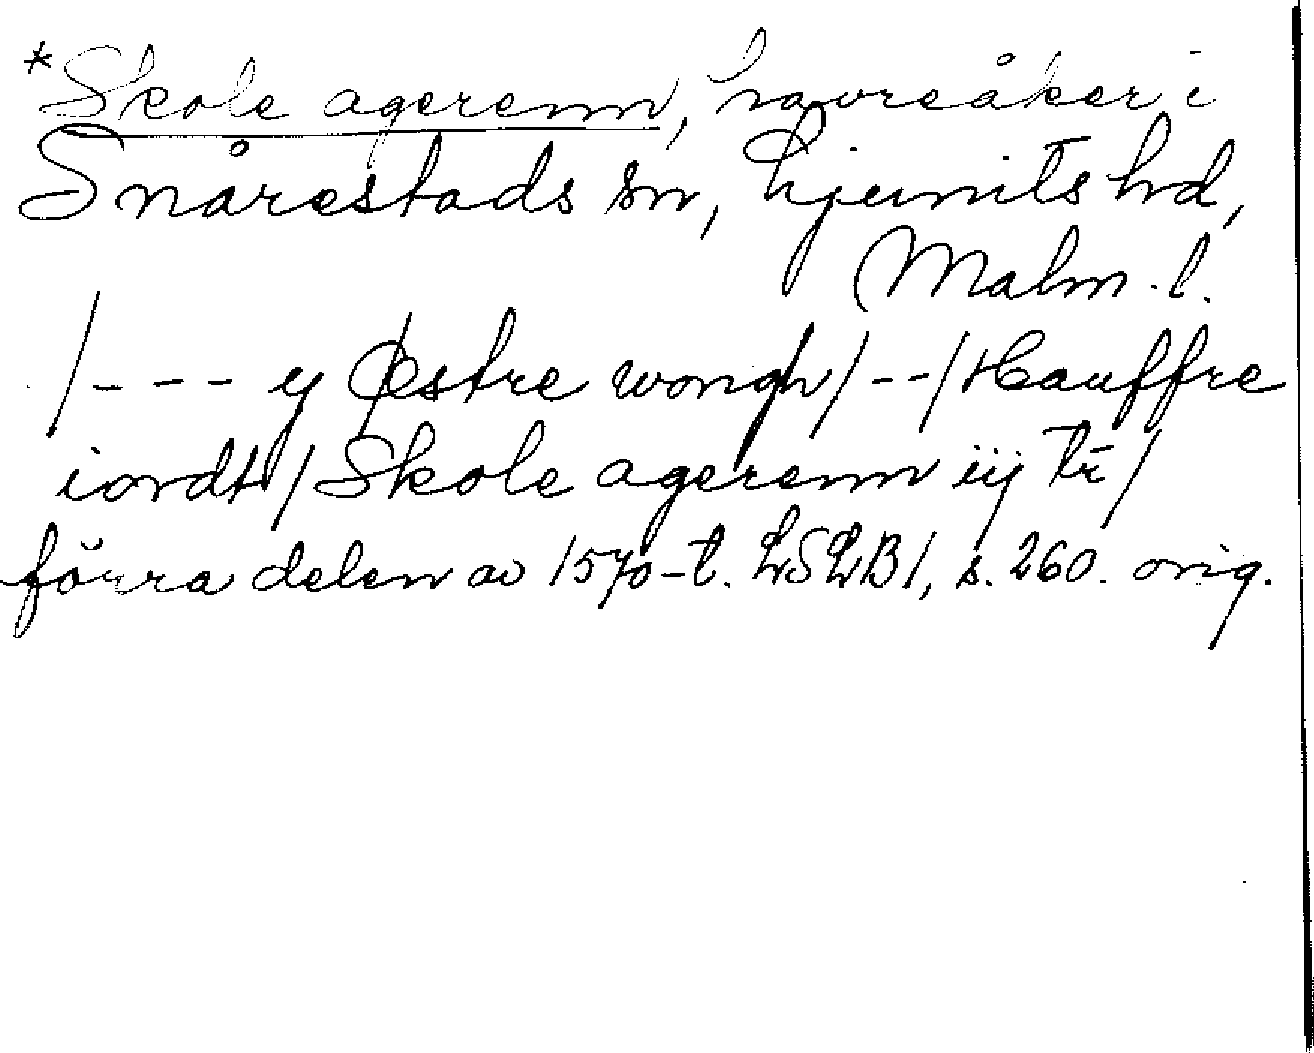 *Skole agerenn, havreåker i
Snårestads sn, Ljunits hd,
Malm. l.
/--- y Østre wongh/--/Hauffre
iordt/Skole agerenn iij
förra delen av 1570-t. LSLB1, s. 260. orig.